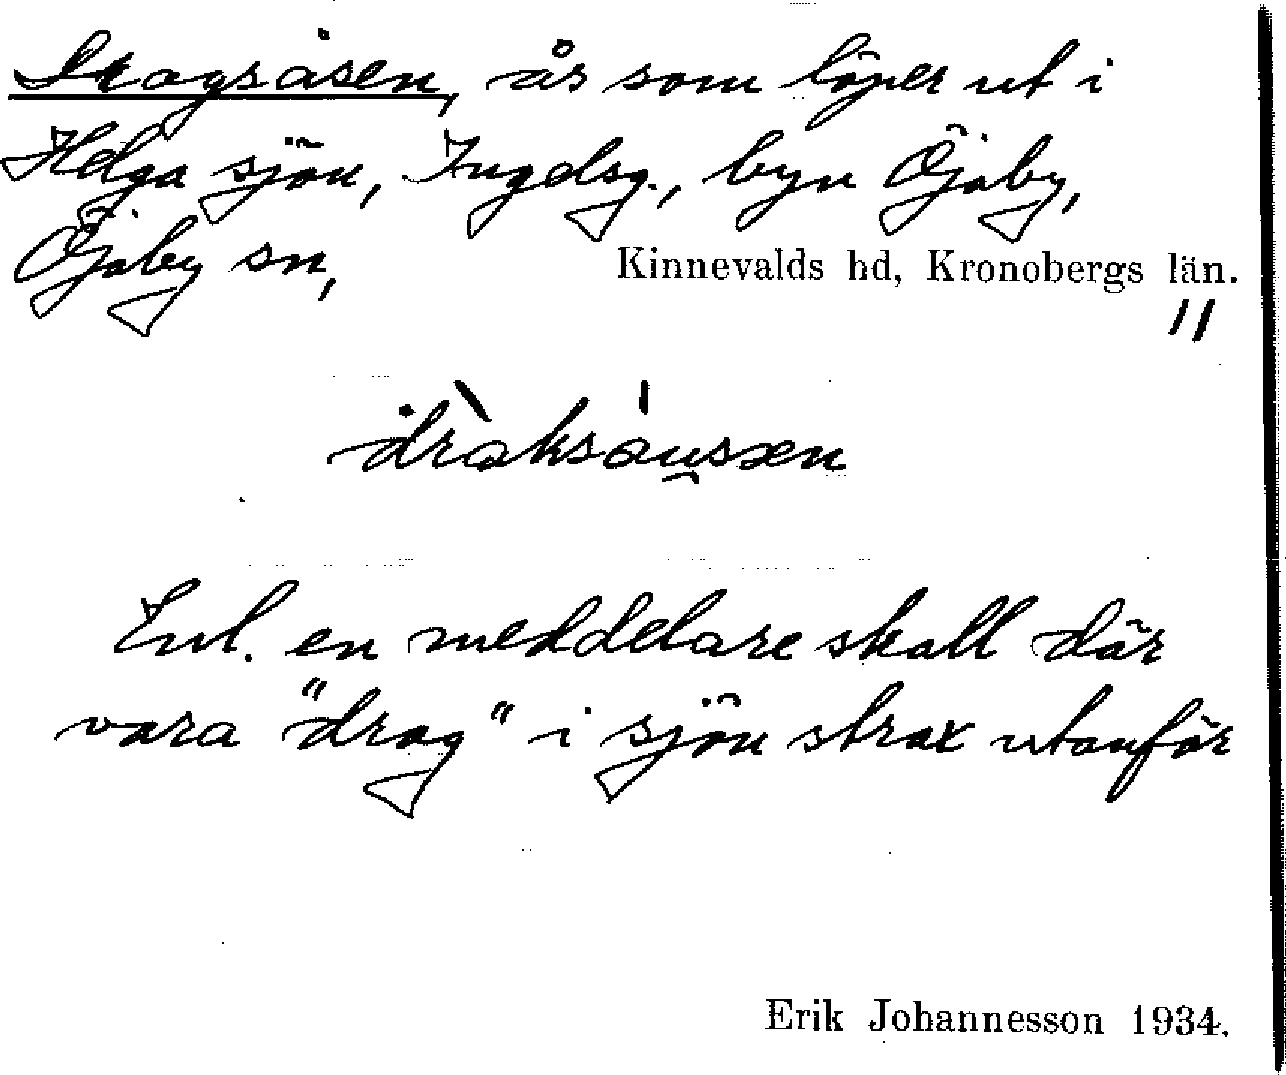 Dragsåsen, ås som löper ut i
Helga sjön, Ingelsg., byn Öjaby,
Öjaby sn, Kinnevalds hd, Kronobergs län.
11
dràksåu̯sen
Enl. en meddelare skall där
vara "drag" i sjön strax utanför
Erik Johannesson 1934.